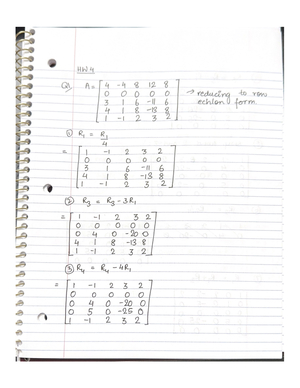 HW 4
Q1. A = [ 4 -4 8 12 8
0 0 0 0 0
3 1 6 -11 6
4 1 8 -13 8
1 -1 2 3 2 ] → reducing to row
echlon form.
① R1 = R1/4
= [ 1 -1 2 3 2
0 0 0 0 0
3 1 6 -11 6
4 1 8 -13 8
1 -1 2 3 2 ]
② R3 = R3 - 3R1
= [ 1 -1 2 3 2
0 0 0 0 0
0 4 0 -20 0
4 1 8 -13 8
1 -1 2 3 2 ]
③ R4 = R4 - 4R1
= [ 1 -1 2 3 2
0 0 0 0 0
0 4 0 -20 0
0 5 0 -25 0
1 -1 2 3 2 ]